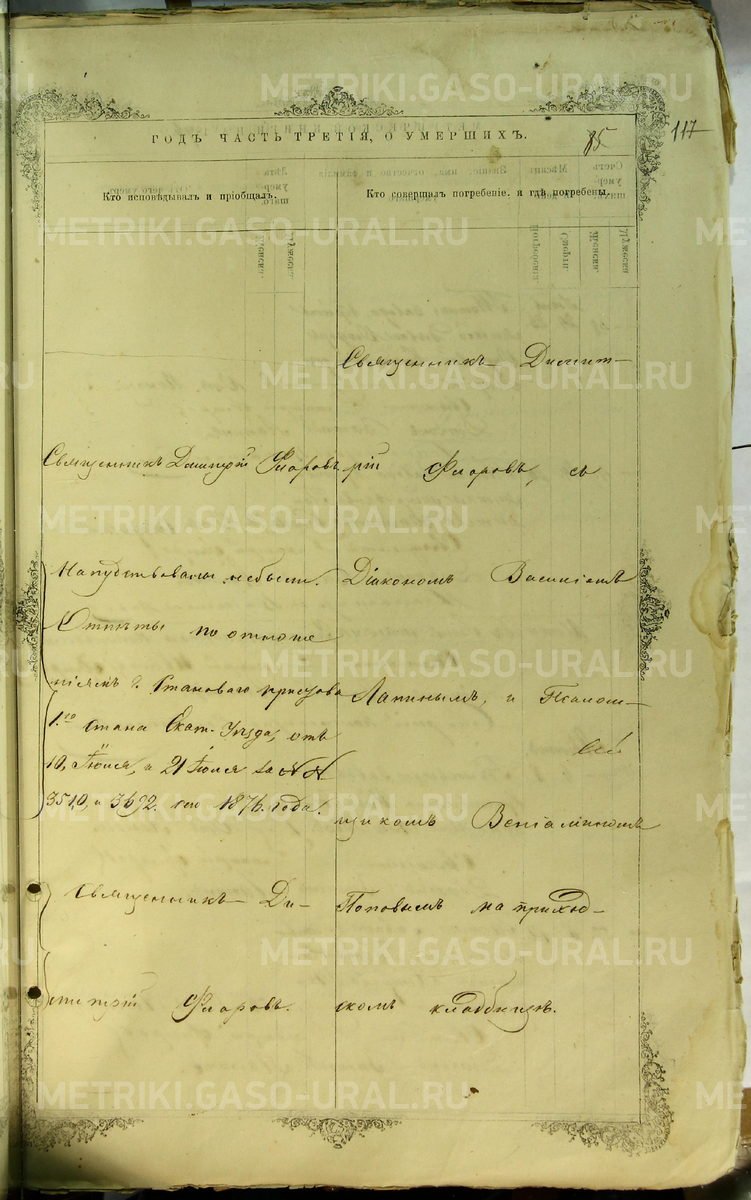 117
85
ГОДЪ ЧАСТЬ ТРЕТІЯ, О УМЕРШИХЪ.
Кто исповѣдывалъ и пріобщалъ.
Священникъ Димитрій Флоровъ
Напутствованы небыли.
Отпѣты по отноше
ніямъ Г. Становаго пристава
1.го Стана Екат. Уѣзда, отъ
10, Іюля, и 21 Іюля за №№
3510, и 3692. сего 1876. года.
Священникъ Ди-
митрій Флоровъ.
Кто совершалъ погребеніе. и гдѣ погребены.
Священникъ Димит-
рій Флоровъ, съ
Діакономъ Василіемъ
Лапинымъ, и Псалом-
щикомъ Веніаминомъ
Поповымъ на приход-
скомъ кладбищѣ.
METRIKI.GASO-URAL.RU